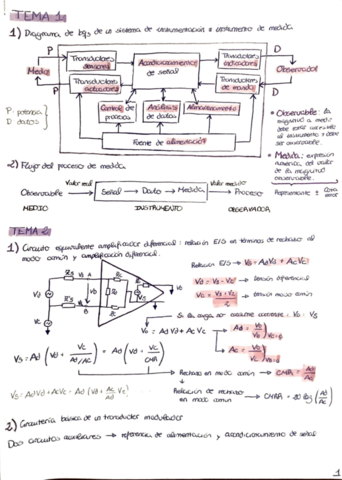 TEMA 1
1) Diagrama de bqs de un sistema de instrumentación o instrumento de medida
P D
Transductores sensores
Acondicionamiento de señal
Transductores indicadores
Medio
Observador
Transductores actuadores
Transductores de mando
P D
Control de procesos
Análisis de datos
Almacenamiento
Fuente de alimentación
P potencia
D datos
• Observable: la
magnitud a medir
debe estar
observable.
• Medida: expresión
numérica del valor
de la magnitud
observable.
2) Flujo del proceso de medida
Observable Valor real Señal → Dato → Medida Valor medido Proceso
MEDIO INSTRUMENTO OBSERVADOR
TEMA 2
1) Circuito equivalente amplificador diferencial: relación E/S en términos de rechazo al
modo común y amplificación diferencial.
Relación E/S → Vo = AdVd + AcVc
tensión diferencial
tensión modo común
Si la carga no consume corriente: Vo = Vs
Vo = Ad Vd + Ac Vc
Rechazo en modo común → CMR = Ad/Ac
Relación de rechazo
en modo común → CMRR = 20 log (Ad/Ac)
2) Circuitería básica de un transductor modulador
Dos circuitos auxiliares → referencia de alimentación y acondicionamiento de señal
1